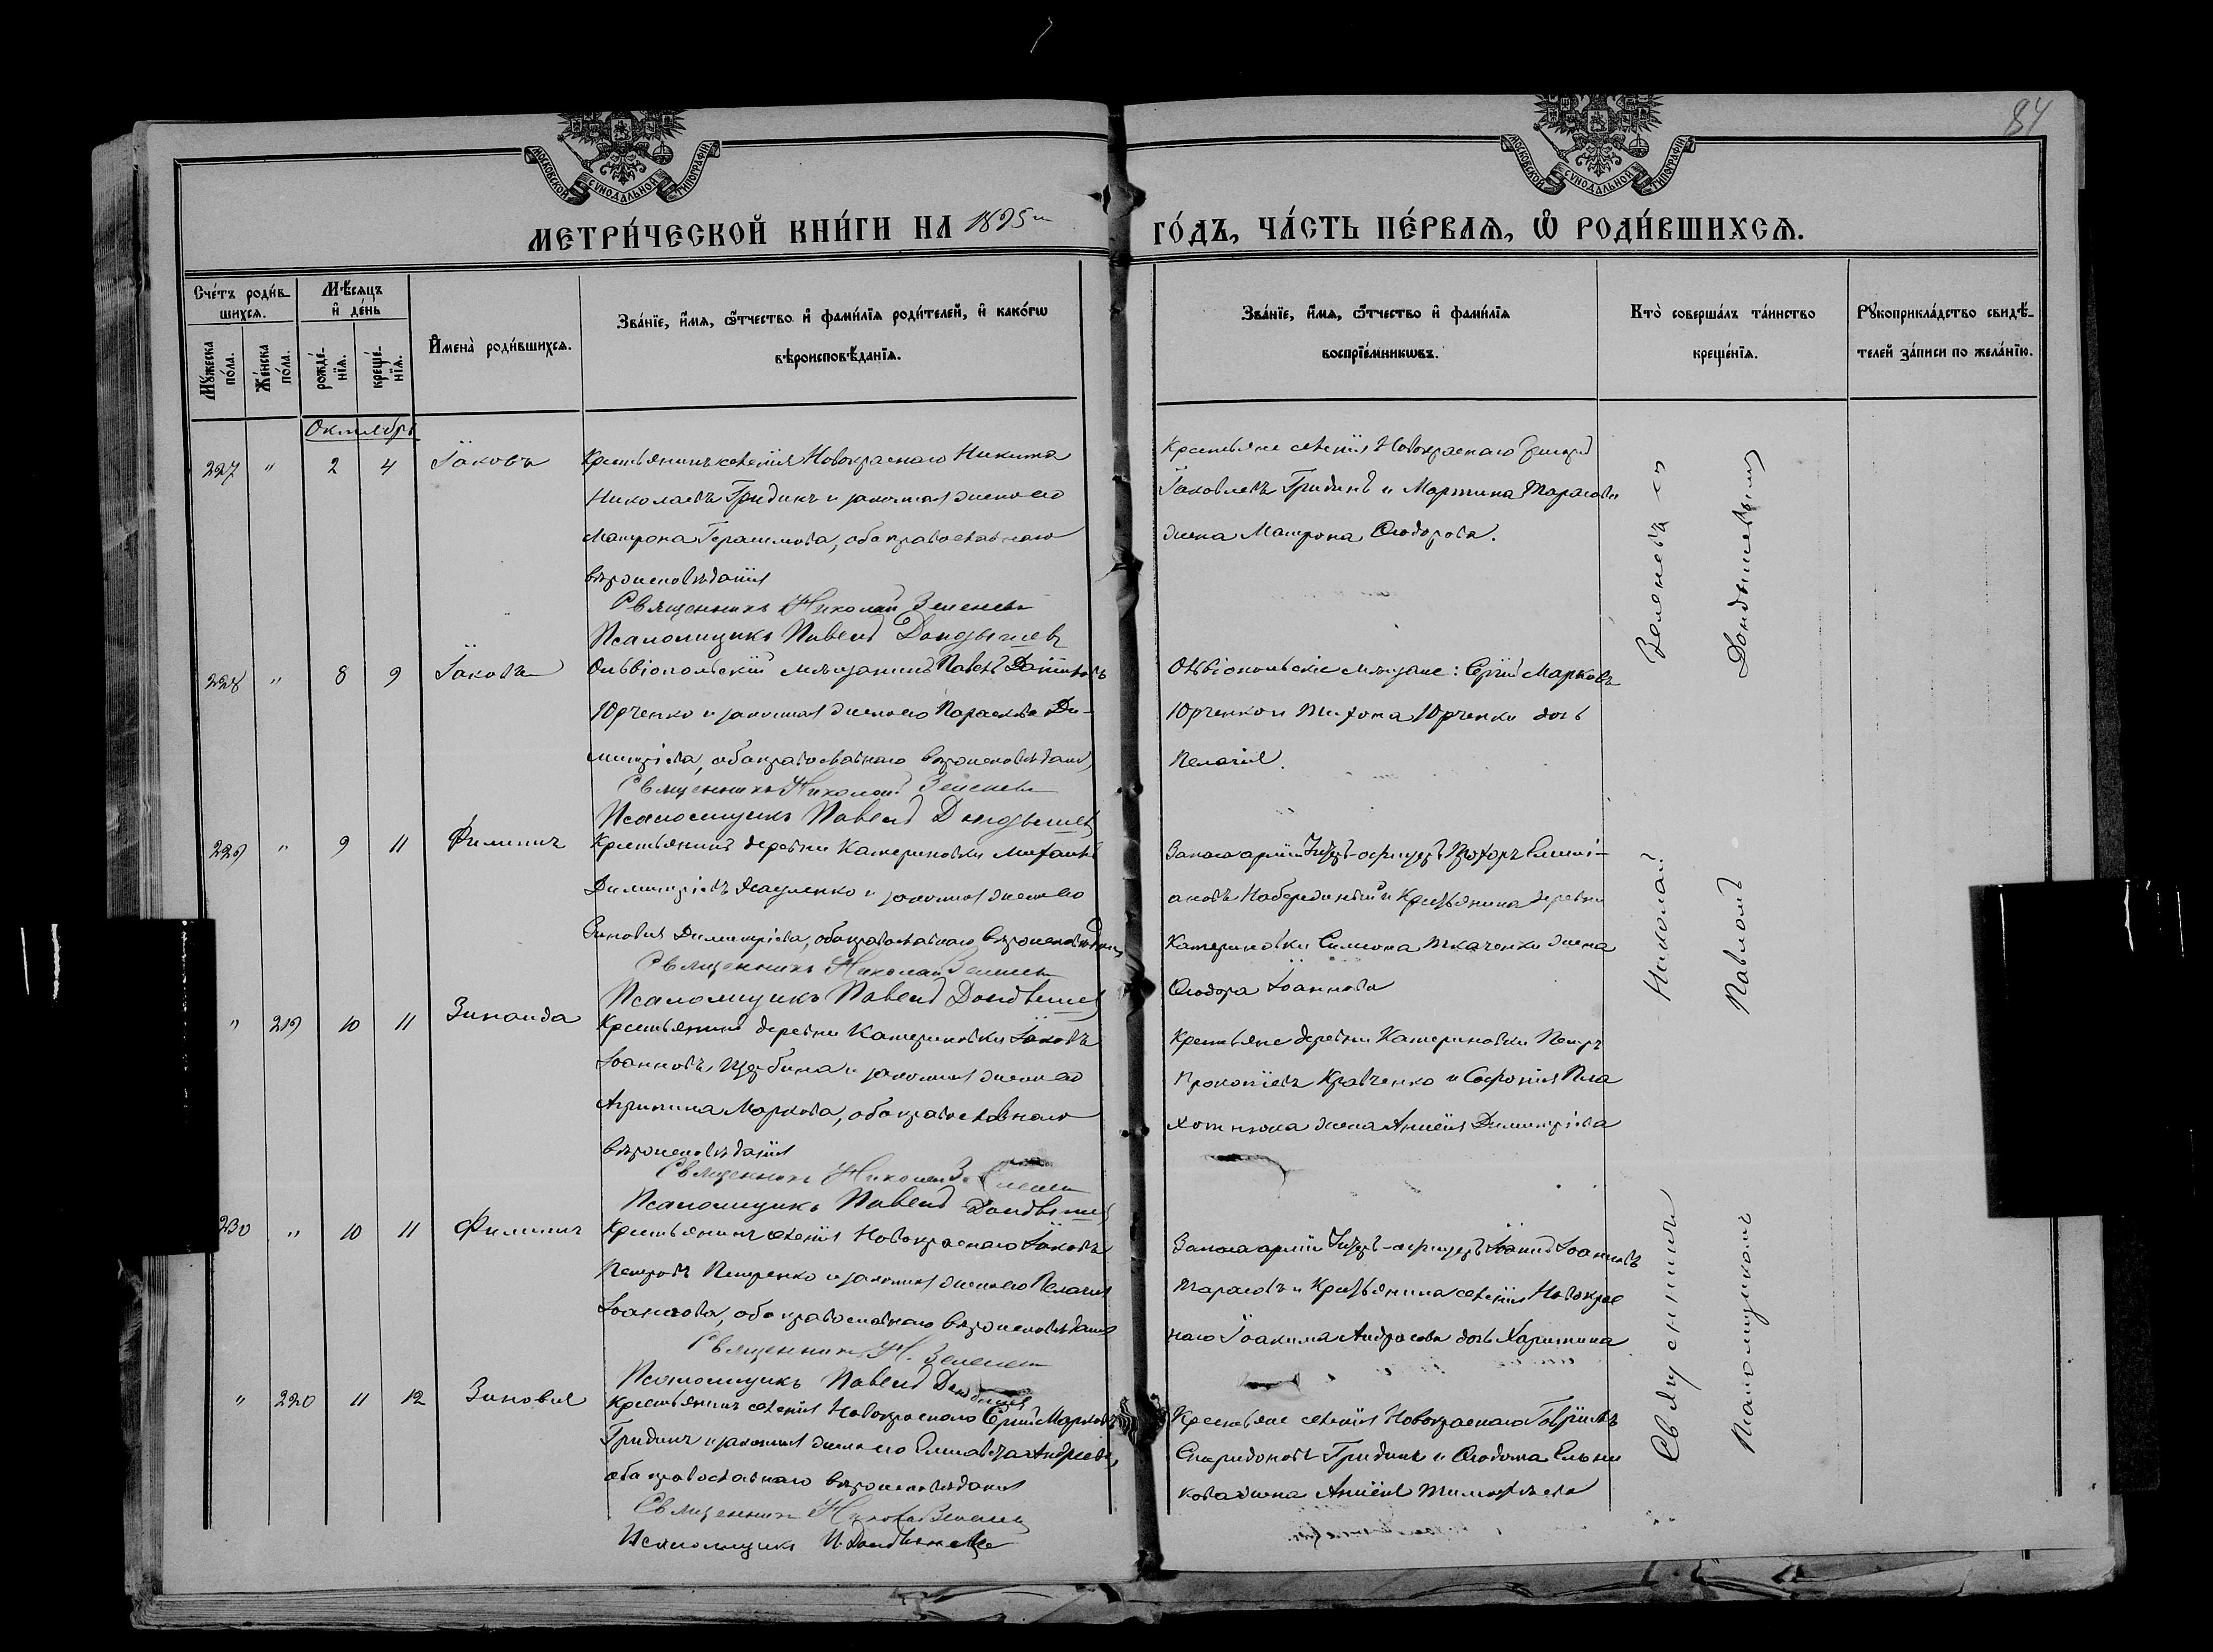 84
МОСКОВСКОЙ СѴНОДАЛЬНОЙ ТИПОГРАФІИ
МОСКОВСКОЙ СѴНОДАЛЬНОЙ ТИПОГРАФІИ
МЕТРИ́ЧЕСКОЙ КНИ́ГИ НА 1895 й
ГО́ДЪ, ЧА́СТЬ ПЕ́РВАѦ, Ѽ РОДИ́ВШИХСѦ.
Сче́тъ роди́в-
шихсѧ.
Мѣ́сѧцъ
и҆ де́нь
Мꙋ́жеска по́ла.
Же́нска по́ла.
рожде́-нїѧ.
креще́-нїѧ.
И҆мена̀ роди́вшихсѧ.
Зва́нїе, и҆́мѧ, ѻ҆́тчество и҆ фами́лїѧ роди́телей, и҆ како́гѡ
вѣроисповѣ́данїѧ.
Зва́нїе, и҆́мѧ, ѻ҆́тчество и҆ фами́лїѧ
воспрїе́мникѡвъ.
Кто̀ соверша́лъ та́инство
креще́нїѧ.
Рꙋкоприкла́дство свидѣ́-
телей за́писи по жела́нїю.
Октябрь
227 " 2 4 Іаковъ
Крестьянинъ селенія Новокраснаго Никита
Николаевъ Гридинъ и законная жена его
Матрона Герасимова, оба православнаго
вѣроисповѣданія
Священникъ Николай Зеленевъ
Псаломщикъ Павелъ Дондышевъ
Крестьяне селенія Новокраснаго
Іаковлевъ Гридинъ и Мартина Тарасова
жена Матрона Ѳеодорова.
228 " 8 9 Іаковъ
Ольвіопольскій мѣщанинъ Павелъ Даніиловъ
Юрченко и законная жена его Параскева Ди-
митріева, оба православнаго вѣроисповѣданія
Священникъ Николай Зеленевъ
Псаломщикъ Павелъ Дондышевъ
Ольвіопольскіе мѣщане: Сергій Марковъ
Юрченко и Тихона Юрченки дочь
Пелагія.
229 " 9 11 Филиппъ
Крестьянинъ деревни Катериновки Михаилъ
Димитріевъ и законная жена его
Зиновія Димитріева, оба православнаго вѣроисповѣданія
Священникъ Николай Зеленевъ
Псаломщикъ Павелъ Дондышевъ
Запаса арміи Унтеръ-офицеръ Прохоръ Емилі-
ановъ Набережный и Крестьянина деревни
Катериновки Симеона Ткаченки жена
Ѳеодора Іоаннова
" 219 10 11 Зинаида
Крестьянинъ деревни Катериновки Іаковъ
Іоанновъ Щербина и законная жена его
Агрипина Маркова, оба православнаго
вѣроисповѣданія
Священникъ Николай Зеленевъ
Псаломщикъ Павелъ Дондышевъ
Крестьяне деревни Катериновки Петръ
Прокопіевъ Кравченко и Софонія Пла
хотнюка жена Анисія Димитріева
230 " 10 11 Филиппъ
Крестьянинъ селенія Новокраснаго Іаковъ
Петровъ Петренко и законная жена его Пелагія
Іоаннова, оба православнаго вѣроисповѣданія
Священникъ Н. Зеленевъ
Псаломщикъ Павелъ Дондышевъ
Запаса арміи Унтеръ-офицеръ Іоаннъ Іоанновъ
Тарасовъ и Крестьянина селенія Новокрас
наго Іоакима Андросова дочь Харитина
" 220 11 12 Зиновія
Крестьянинъ селенія Новокраснаго Сергій Марковъ
Гридинъ и законная жена его Елисавета Андреева,
оба православнаго вѣроисповѣданія
Священникъ Николай Зеленевъ
Псаломщикъ П. Дондышевъ
Крестьяне селенія Новокраснаго Гавріилъ
Спиридоновъ Гридинъ и Ѳеодота Ельни
кова жена Анисія Тимофѣева
Священникъ Николай Зеленевъ съ
Псаломщикомъ Павломъ Дондышевымъ